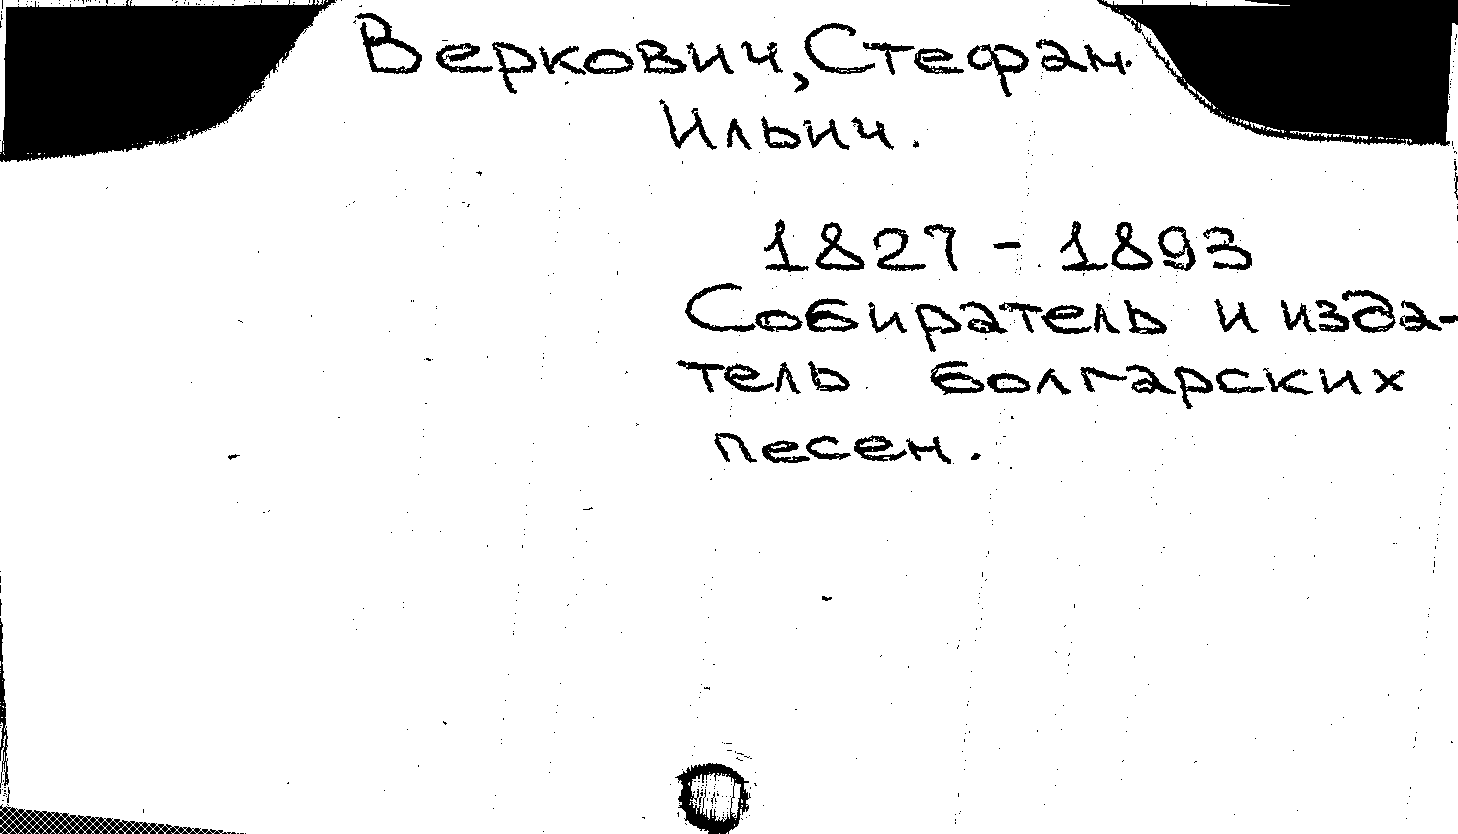 Веркович, Стефан
Ильич.
1827 - 1893
Собиратель и изда-
тель болгарских
песен.